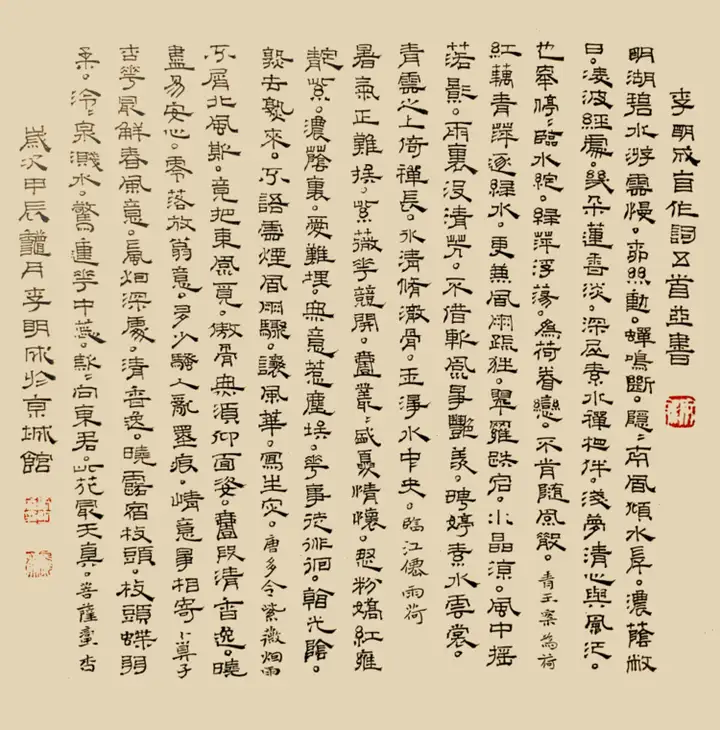 李明成自作詞五首並書
明湖碧水游需慢。絲動。蟬鳴斷。隱隱南風傾水岸。濃蔭蔽
日。凌波經處。幾朵蓮香淡。深素水禪相伴。淺夢清心與風泛。
也牽停停臨水綻。綠萍浮蕩。為荷眷戀。不肯隨風散。青玉案為荷
紅藕青萍逐綠水。更兼風雨疏狂。翠羅跌宕小晶涼。風中搖
落影。雨裏沒清芳。不借新風爭艷羨。娉婷素水雲裳。
青雲之上倚禪長。冰清脩傲骨。玉淨水中央。臨江僊雨荷
暑氣正難挨。紫薇花競開。疊叢叢盛憂情懷。愁粉嬌紅雍
靛紫。濃蔭裏。愛難埋。無意惹塵埃。花事徒徘徊。韶光陰。
愁來。不語需煙風雨驟。讓風華。寫生灾。唐多令紫薇烟雨
不屑北風斯。竟把東風覓。傲骨無須仰面姿。疊段清香逸。曉
盡易安心。零落放翁意。多少騷人亂墨痕。情意爭相寄 卜算子
杏花最解春風意。風烟深處。清香逸。曉露宿枝頭。枝頭蝶羽
柔。泠泠泉濺水。驚進花中蕊。默默向東君。此花最天真。菩薩蠻杏
歲次甲辰龍月李明成於京城館